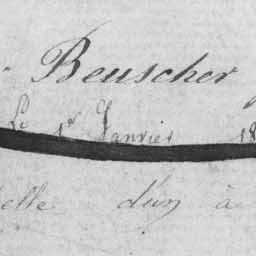 Beuscher
Le 1er Janvier 18
elle d'un à